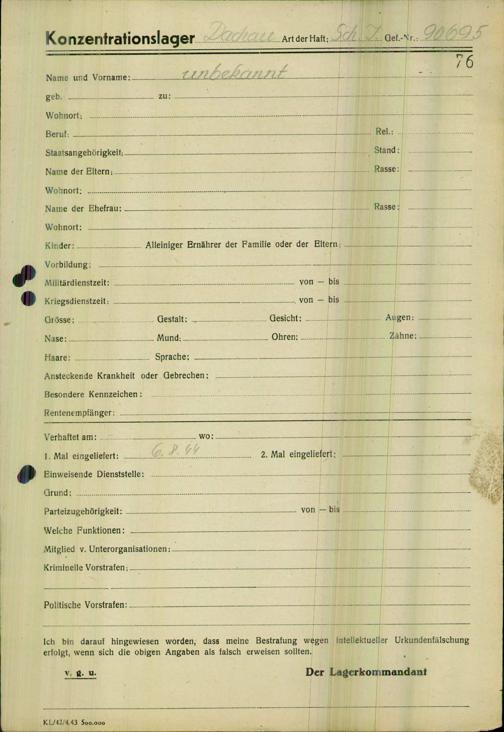 Konzentrationslager Dachau Art der Haft: Sch. J. Gef.-Nr.: 90695
76
Name und Vorname: unbekannt
geb. zu:
Wohnort:
Beruf: Rel.:
Staatsangehörigkeit: Stand:
Name der Eltern: Rasse:
Wohnort:
Name der Ehefrau: Rasse:
Wohnort:
Kinder: Alleiniger Ernährer der Familie oder der Eltern:
Vorbildung:
Militärdienstzeit: von — bis
Kriegsdienstzeit: von — bis
Grösse: Gestalt: Gesicht: Augen:
Nase: Mund: Ohren: Zähne:
Haare: Sprache:
Ansteckende Krankheit oder Gebrechen:
Besondere Kennzeichen:
Rentenempfänger:
Verhaftet am: wo:
1. Mal eingeliefert: 6.8.44 2. Mal eingeliefert:
Einweisende Dienststelle:
Grund:
Parteizugehörigkeit: von — bis
Welche Funktionen:
Mitglied v. Unterorganisationen:
Kriminelle Vorstrafen:
Politische Vorstrafen:
Ich bin darauf hingewiesen worden, dass meine Bestrafung wegen intellektueller Urkundenfälschung
erfolgt, wenn sich die obigen Angaben als falsch erweisen sollten.
v. g. u. Der Lagerkommandant
KL/42/4.43 500.000